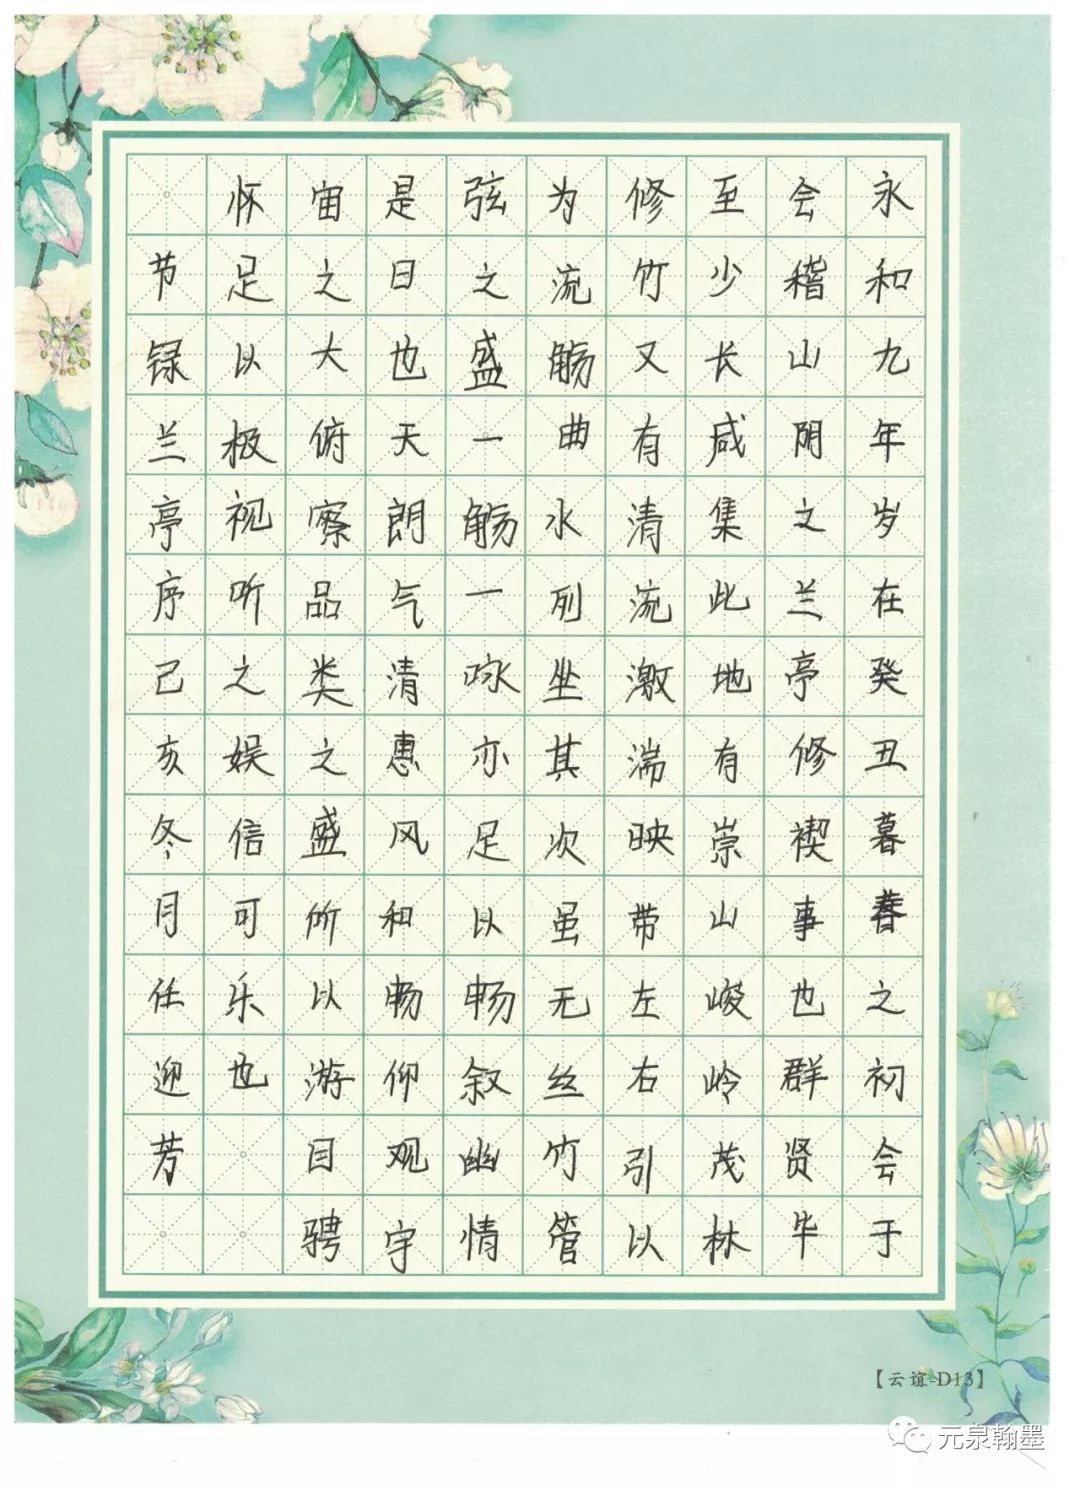 永和九年岁在癸丑暮春之初会于
会稽山阴之兰亭修禊事也群贤毕
至少长咸集此地有崇山峻岭茂林
修竹又有清流激湍映带左右引以
为流觞曲水列坐其次虽无丝竹管
弦之盛一觞一咏亦足以畅叙幽情
是日也天朗气清惠风和畅仰观宇
宙之大俯察品类之盛所以游目骋
怀足以极视听之娱信可乐也
节录兰亭序己亥冬月任迎芳
【云谊-D13】
元泉翰墨